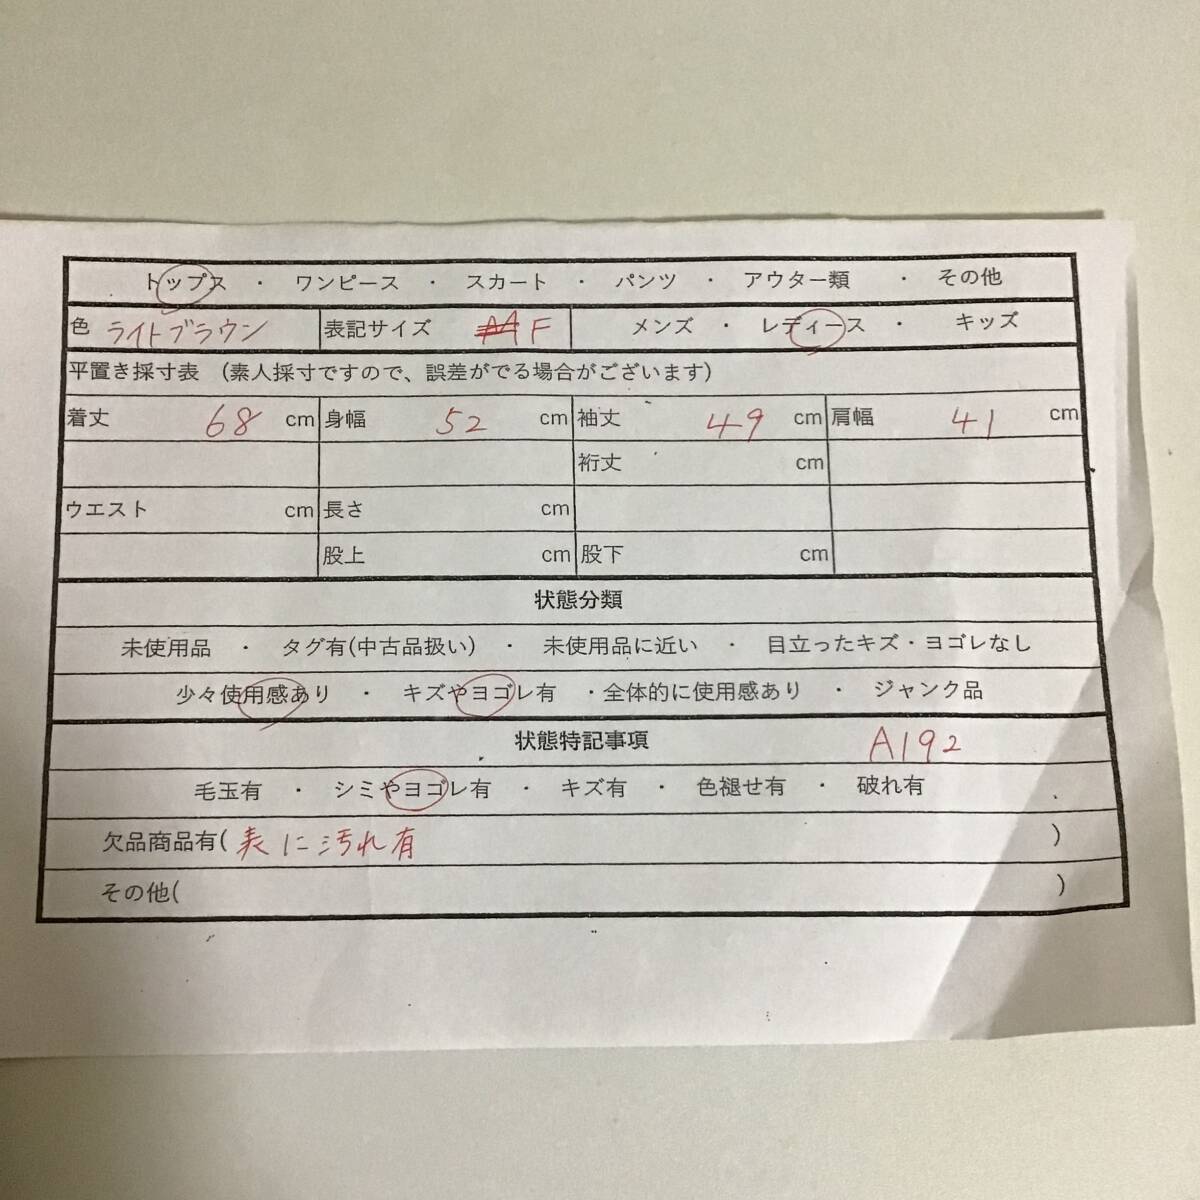 トップス ・ ワンピース ・ スカート ・ パンツ ・ アウター類 ・ その他
色 ライトブラウン 表記サイズ F メンズ ・ レディース ・ キッズ
平置き採寸表 (素人採寸ですので、誤差がでる場合がございます)
着丈 68 cm 身幅 52 cm 袖丈 49 cm 肩幅 41 cm
裄丈 cm
ウエスト cm 長さ cm
股上 cm 股下 cm
状態分類
未使用品 ・ タグ有(中古品扱い) ・ 未使用品に近い ・ 目立ったキズ・ヨゴレなし
少々使用感あり ・ キズやヨゴレ有 ・全体的に使用感あり ・ ジャンク品
状態特記事項 A192
毛玉有 ・ シミやヨゴレ有 ・ キズ有 ・ 色褪せ有 ・ 破れ有
欠品商品有( 表に汚れ有 )
その他( )